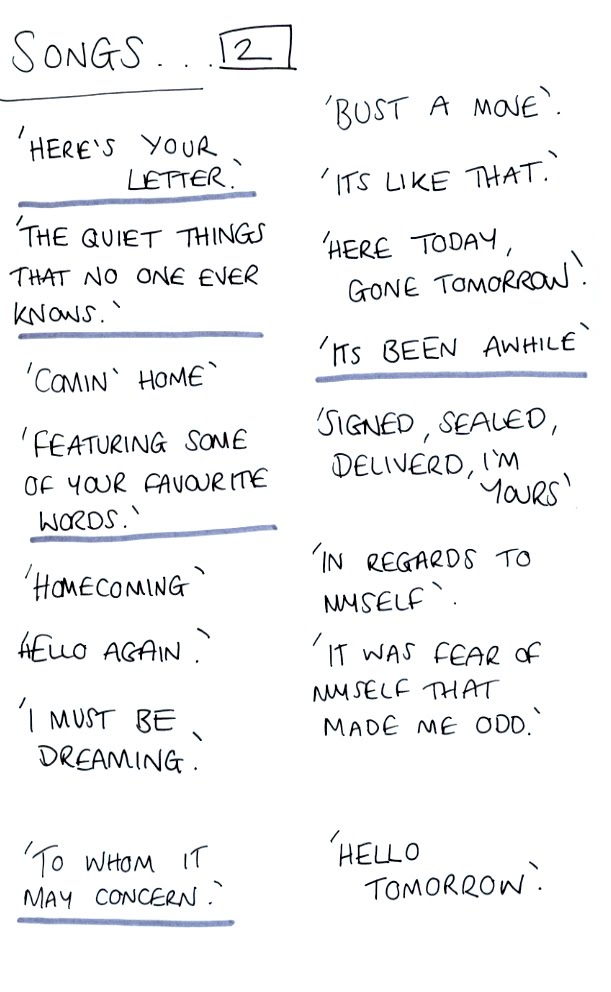 SONGS... 2
'HERE'S YOUR
LETTER.'
'THE QUIET THINGS
THAT NO ONE EVER
KNOWS.'
'COMIN' HOME'
'FEATURING SOME
OF YOUR FAVOURITE
WORDS.'
'HOMECOMING'
'HELLO AGAIN.'
'I MUST BE
DREAMING.'
'TO WHOM IT
MAY CONCERN.'
'BUST A MOVE'.
'ITS LIKE THAT.'
'HERE TODAY,
GONE TOMORROW.'
'ITS BEEN AWHILE'
'SIGNED, SEALED,
DELIVERD, I'M
YOURS'
'IN REGARDS TO
MYSELF'.
'IT WAS FEAR OF
MYSELF THAT
MADE ME ODD.'
'HELLO
TOMORROW'.